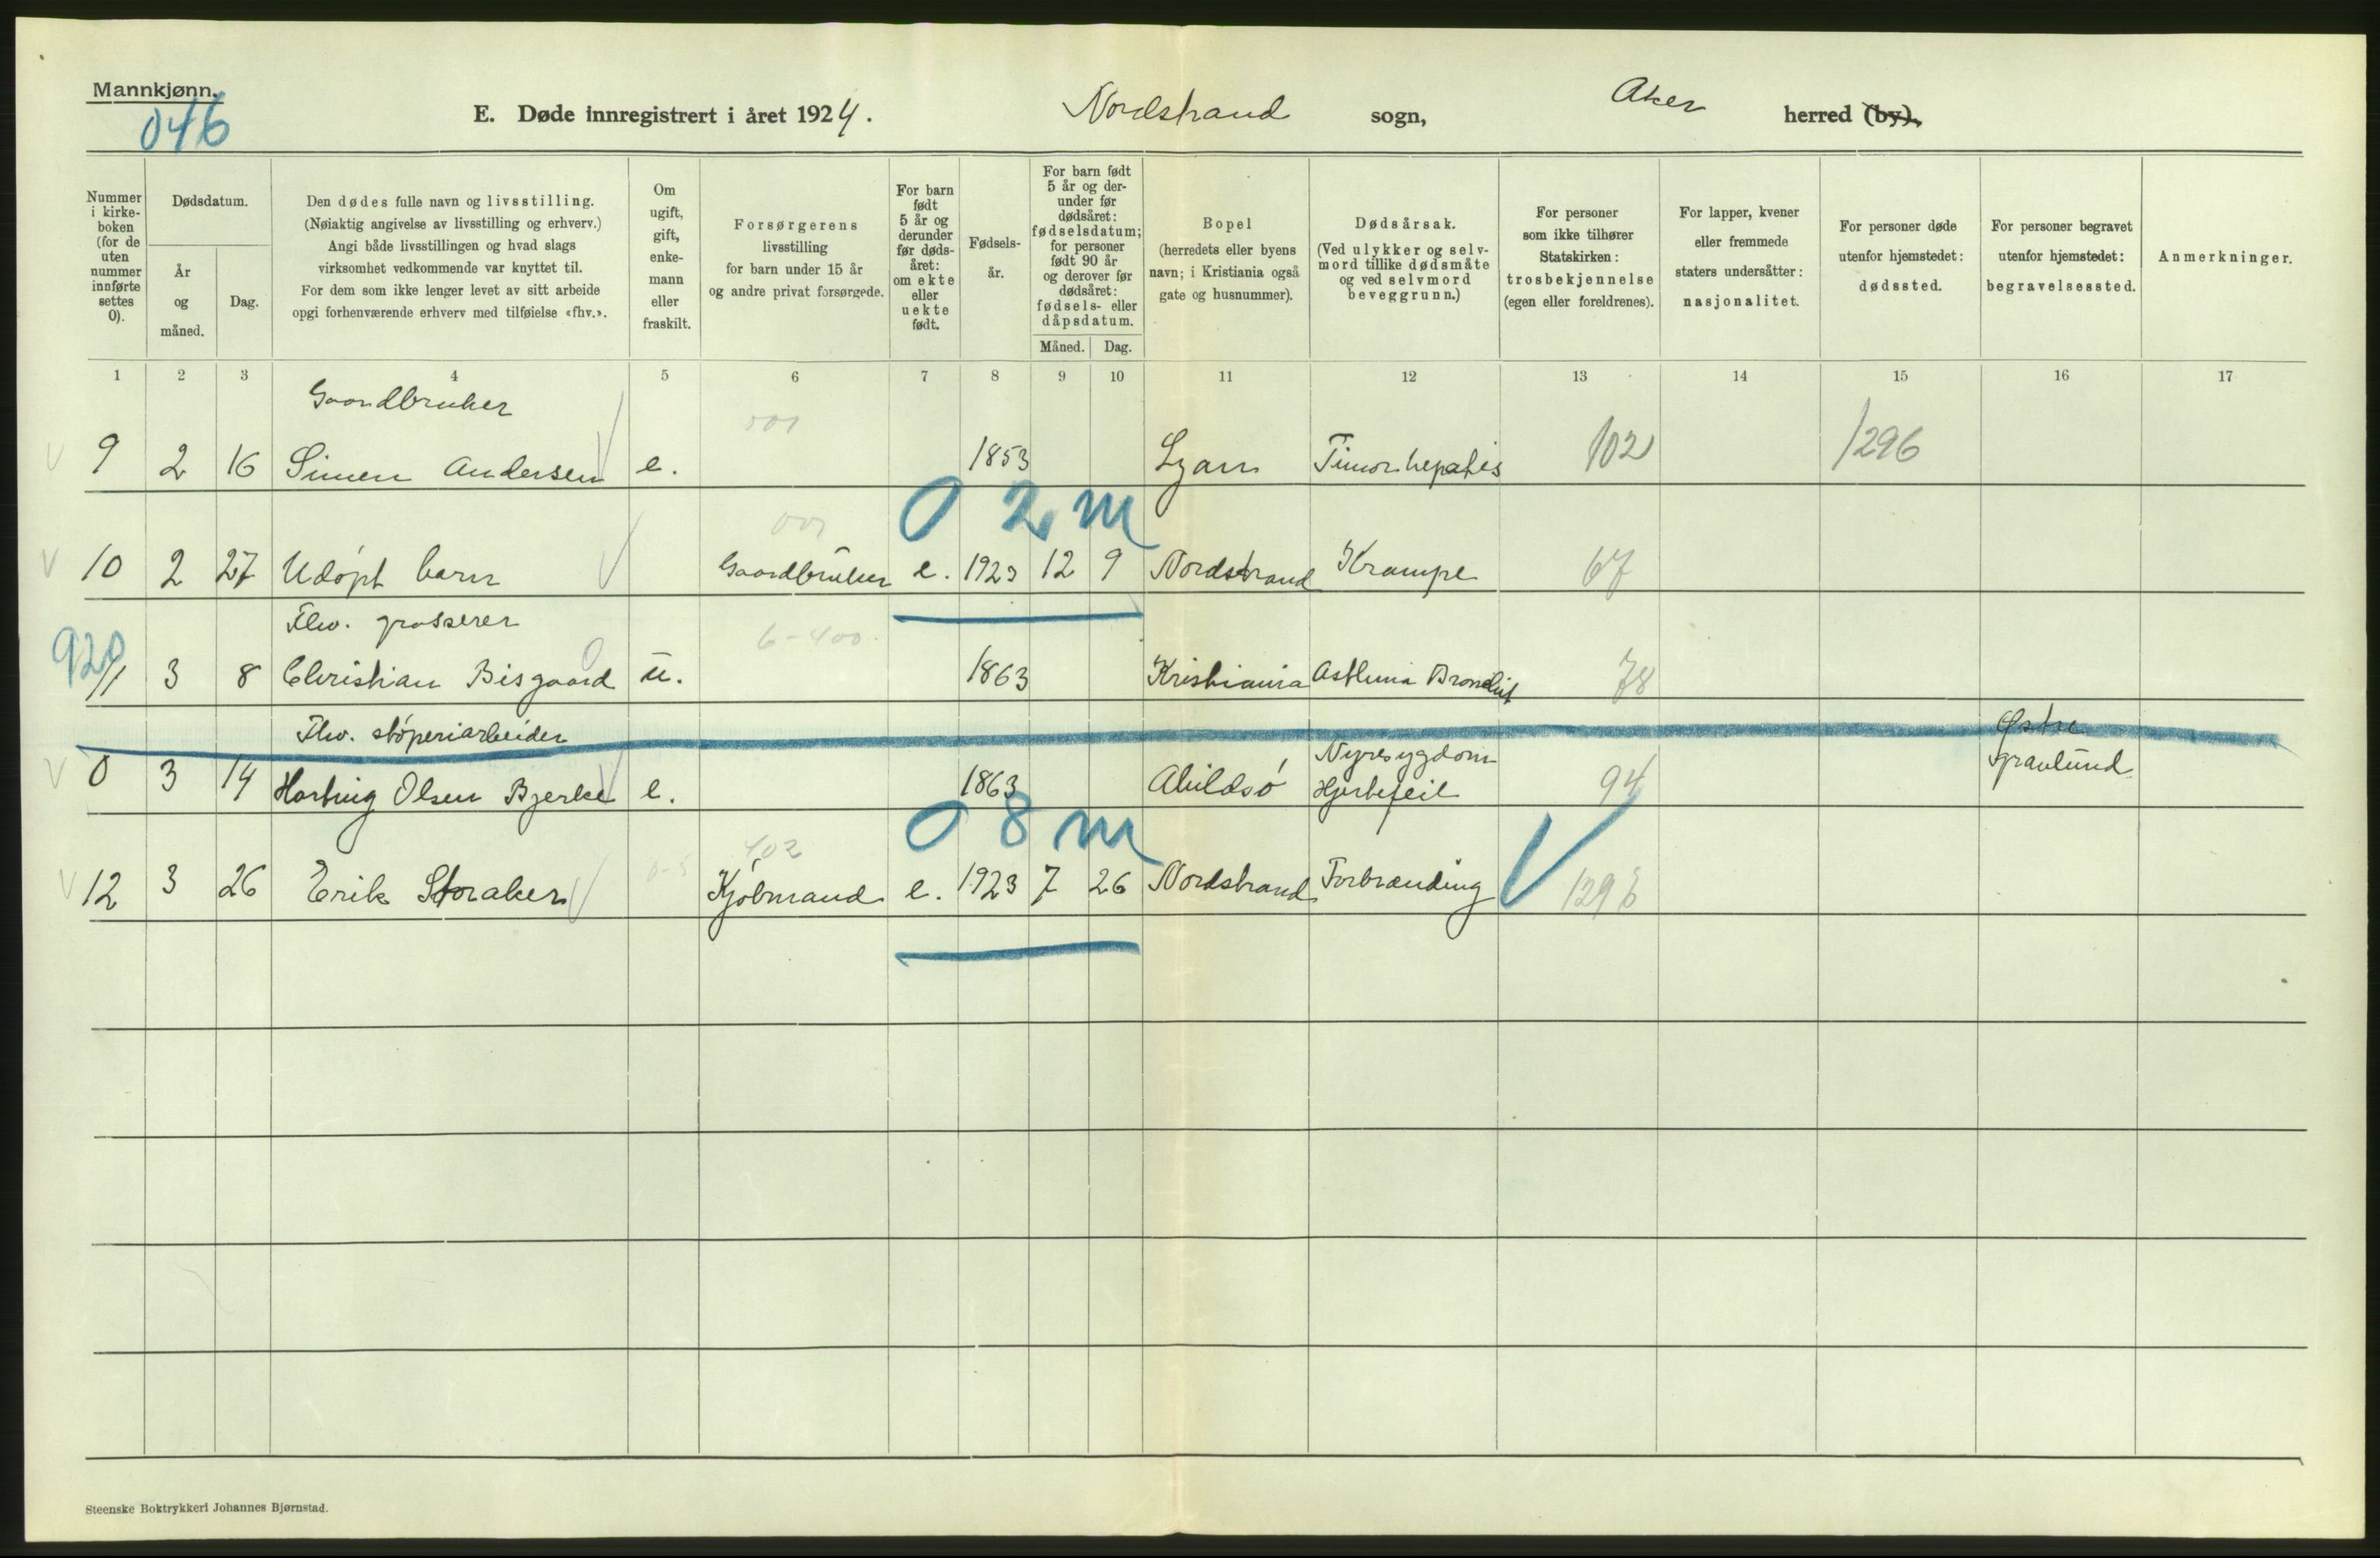 Mannkjønn.
046
E. Døde innregistrert i året 1924. Nordstrand sogn, Aker herred (by).
Nummer i kirke- boken (for de uten nummer innførte settes 0).
Dødsdatum.
År og måned.
Dag.
Den dødes fulle navn og livsstilling.
(Nøiaktig angivelse av livsstilling og erhverv.)
Angi både livsstillingen og hvad slags
virksomhet vedkommende var knyttet til.
For dem som ikke lenger levet av sitt arbeide
opgi forhenværende erhverv med tilføielse «fhv.».
Om ugift, gift, enke- mann eller fraskilt.
Forsørgerens
livsstilling
for barn under 15 år
og andre privat forsørgede.
For barn født 5 år og derunder før døds- året: om ekte eller uekte født.
Fødsels- år.
For barn født 5 år og der- under før dødsåret: fødselsdatum; for personer født 90 år og derover før dødsåret: fødsels- eller dåpsdatum.
Måned. Dag.
Bopel
(herredets eller byens
navn; i Kristiania også
gate og husnummer).
Dødsårsak.
(Ved ulykker og selv-
mord tillike dødsmåte
og ved selvmord
beveggrunn.)
For personer
som ikke tilhører
Statskirken:
trosbekjennelse
(egen eller foreldrenes).
For lapper, kvener
eller fremmede
staters undersåtter:
nasjonalitet.
For personer døde
utenfor hjemstedet:
dødssted.
For personer begravet
utenfor hjemstedet:
begravelsessted.
Anmerkninger.
1 2 3 4 5 6 7 8 9 10 11 12 13 14 15 16 17
Gaardbruker
001
9 2 16 Simen Andersen e. 1853 Ljan Tumor hepatis 102 1296
0 2 m
001
10 2 27 Udøpt barn Gaardbruker e. 1923 12 9 Nordstrand Krampe 67
Fhv. grosserer
6-400
920
11 3 8 Christian Bisgaard u. 1863 Kristiania Asthma Bronchit 78
Fhv. støperiarbeider
Østre
gravlund
Nyresygdom
0 3 14 Hartvig Olsen Bjerke e. 1863 Abildsø Hjertefeil 94
0 8 m
402
12 3 26 Erik Storaker 0-5 Kjøbmand e. 1923 7 26 Nordstrand Forbrænding
Steenske Boktrykkeri Johannes Bjørnstad.